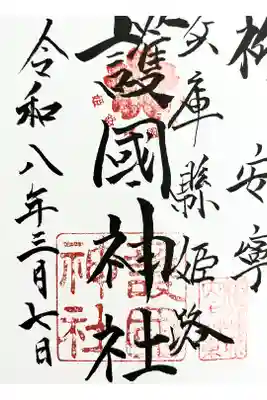 柳安寧
兵庫縣姫路
護國神社
令和八年三月七日
護國神社